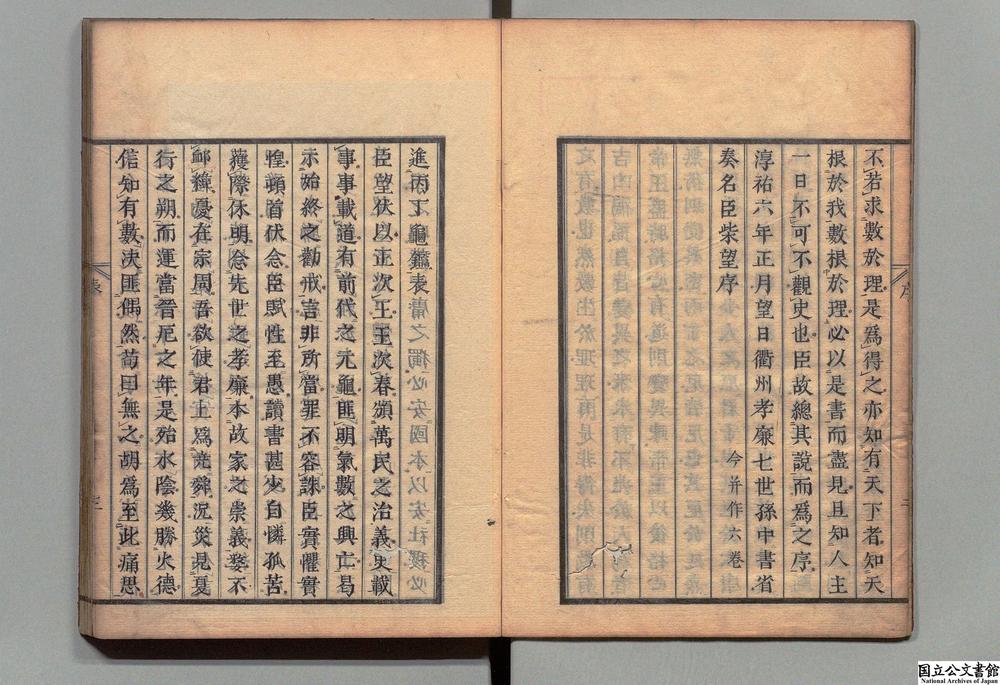 不若求數於理是爲得之亦知有天下者知天
根於我數根於理必以是書而盡見且知人主
一日不可不觀史也臣故總其說而爲之序
淳祐六年正月望日衢州孝廉七世孫中書省
奏名臣柴望序 今并作六卷
序
二
進丙丁龜鑑表
臣望伏以正次王王次春頒萬民之治義史載
事事載道有前代之元龜匪明氣數之興亡曷
示始終之勸戒言非所當罪不容誅臣實懼實
惶頓首伏念臣賦性至愚讀書甚少自憐孤苦
獲際休明念先世之孝廉本故家之崇義嫠不
卹緯憂在宗周吾欲使君上爲堯舜況災見夏
行之朔而運當晉厄之年是殆水陰幾勝火德
信知有數決匪偶然苟曰無之胡爲至此痛思
表
国立公文書館
National Archives of Japan